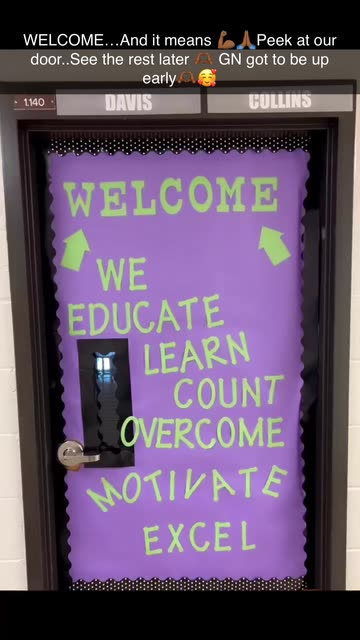 WELCOME...And it means 💪🏾🙏🏾Peek at our
door..See the rest later 🫶🏾 GN got to be up
early🫶🏾🥰
1.140 DAVIS COLLINS
WELCOME
WE
EDUCATE
LEARN
COUNT
OVERCOME
MOTIVATE
EXCEL